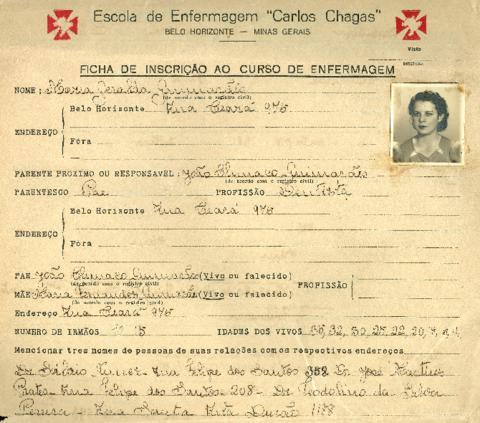 Escola de Enfermagem "Carlos Chagas"
BELO HORIZONTE — MINAS GERAIS
Visto
FICHA DE INSCRIÇÃO AO CURSO DE ENFERMAGEM
NOME: Maria Geralda Guimarães
(de acordo com o registro civil)
Belo Horizonte Rua Ceará 976
ENDEREÇO
Fóra
PARENTE PROXIMO OU RESPONSAVEL: João Climaco Guimarães
(de acordo com o registro civil)
PARENTESCO Pae PROFISSÃO Dentista
Belo Horizonte Rua Ceará 976
ENDEREÇO
Fóra
PAE João Climaco Guimarães (Vivo ou falecido)
(de acordo com o registro civil)
PROFISSÃO
MÃE Maria Fernandes Guimarães (Viva ou falecida)
(de acordo com o registro civil)
Endereço Rua Ceará 976
NUMERO DE IRMÃOS IDADES DOS VIVOS 32, 30, 25, 22, 20,
Mencionar tres nomes de pessoas de suas relações com os respectivos enderços
Dr. Nunes - Rua Felipe dos Santos 352 Dr. José Martins
Prates - Rua Felipe dos Santos - 208 - Dr. Teodolino da Silva
Pereira - Rua Santa Rita Durão 1188